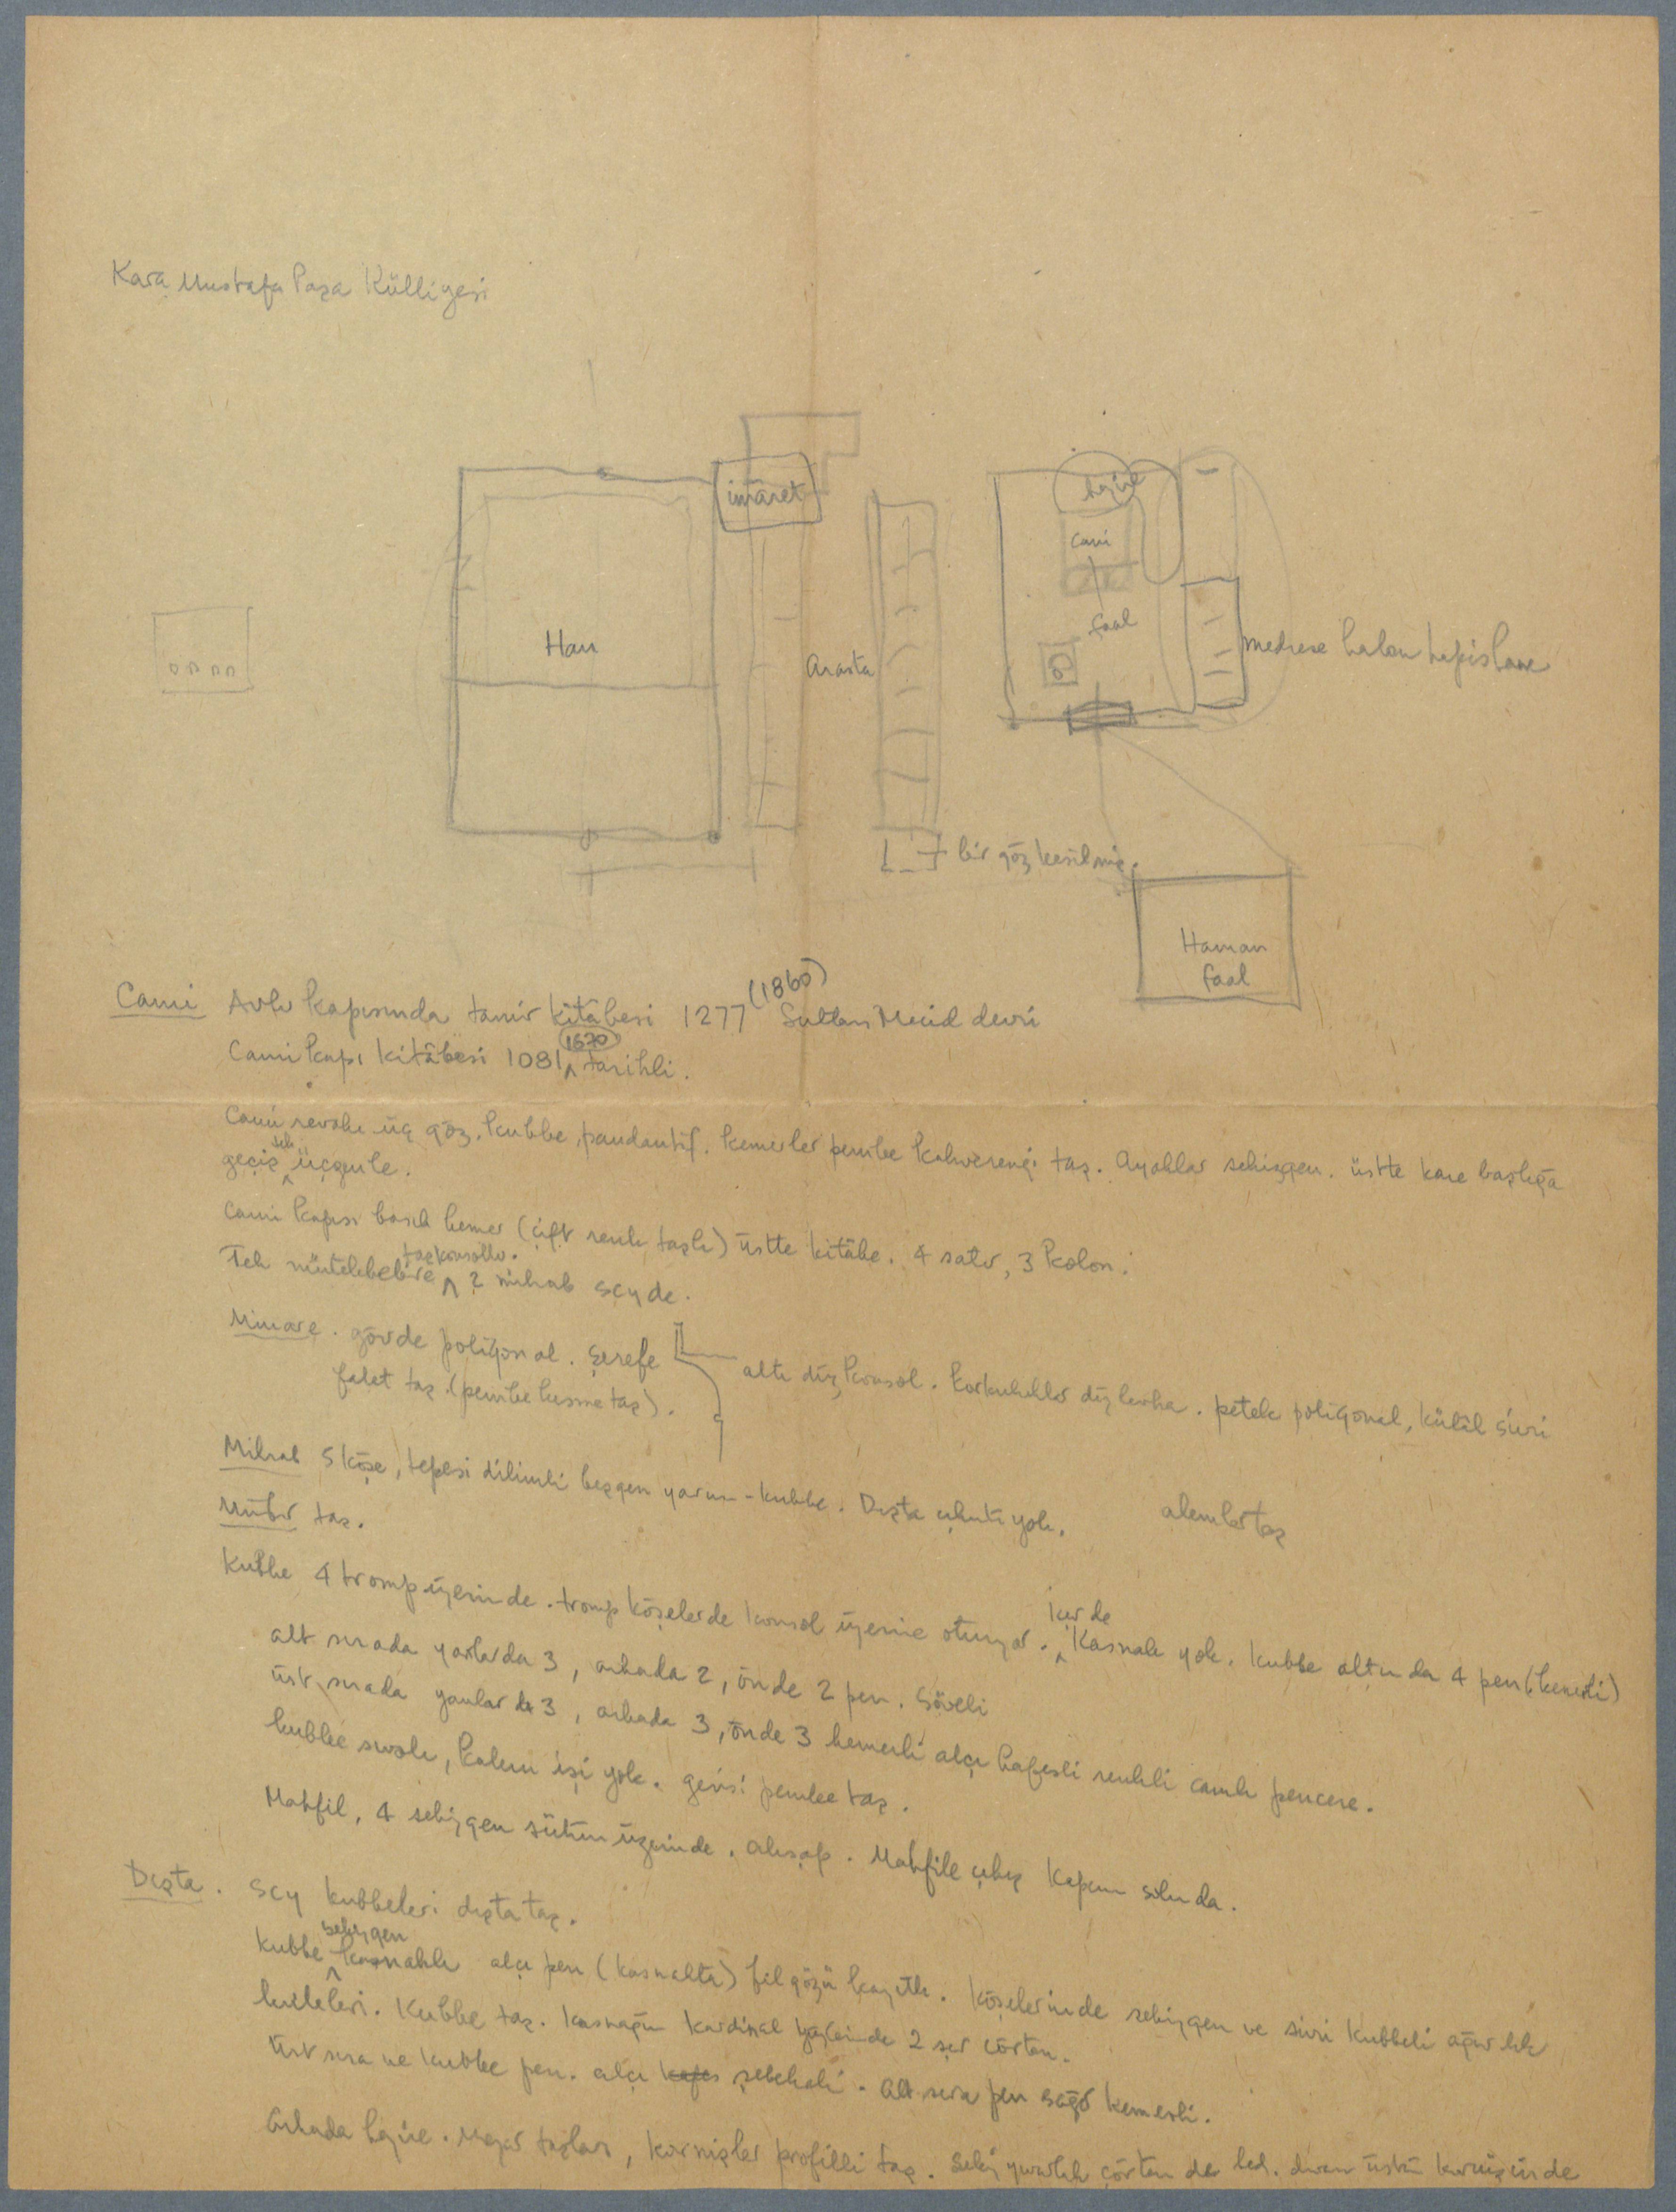 Kara Mustafa Paşa Külliyesi
imâret
hazire
Cami
faal
Han
Arasta
medrese halen hapishane
bir göz kesilmiş.
Hamam
faal
Cami Avlu kapısında tamir kitâbesi 1277 (1860) Sultan Mecid devri
Cami kapı kitâbesi 1081 (1670) tarihli.
Cami revakı üç göz. kubbe, pandantif. Kemerler pembe kahverengi taş. Ayaklar sekizgen. üstte kare başlığa
geçiş üçgenle.
Cami kapısı basık kemer (çift renk taşlı) üstte kitâbe. 4 satır, 3 kolon.
Tek mütekebbire taş konsollu. 2 mihrab scy de.
Minare. gövde poligonal. Şerefe altı düz konsol. Korkuluklar düz levha. petek poligonal, külâh sivri
fakat taş. (pembe kesme taş).
Mihrab 5 köşe, tepesi dilimli beşgen yarım-kubbe. Dışta çıkıntı yok.
alemler taş
Minber taş.
Kubbe 4 tromp üzerinde. tromp köşelerde konsol üzerine oturuyor. İçerde Kasnak yok. kubbe altında 4 pen (kemerli)
alt sırada yanlarda 3, arkada 2, önde 2 pen. Söveli
üst sırada yanlarda 3, arkada 3, önde 3 kemerli alçı kafesli renkli camlı pencere.
kubbe sıvalı, kalem işi yok. gerisi pembe taş.
Mahfil, 4 sekizgen sütun üzerinde. ahşap. Mahfile çıkış kapının solunda.
Dışta. scy kubbeleri dışta taş.
kubbe sekizgen kasnaklı alçı pen (kasnakta) filgözü kayıtlı. Köşelerinde sekizgen ve sivri kubbeli ağırlık
kuleleri. Kubbe taş. kasnağın kardinal yüzlerinde 2 şer çörten.
Üst sıra ve kubbe pen. alçı kafes şebekeli. Alt sıra pen sağır kemerli.
Arkada hazire. Mezar taşları, kornişler profilli taş. Sekiz yuvarlak çörten de duvar üstü kornişinde